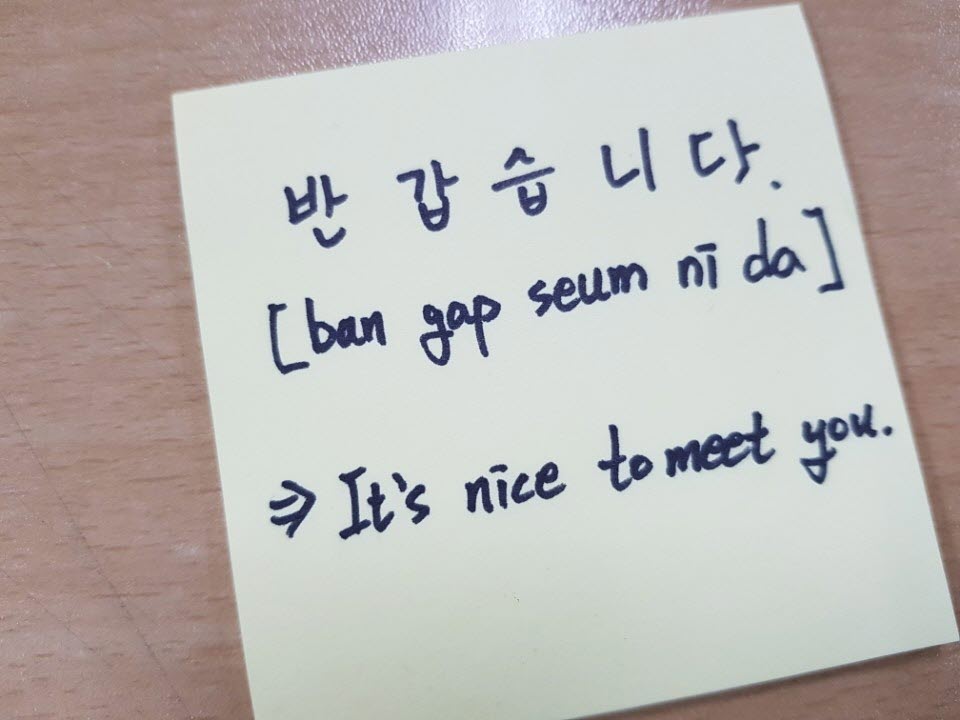 반 갑 습 니 다.
[ban gap seum ni da]
⇒ It's nice to meet you.